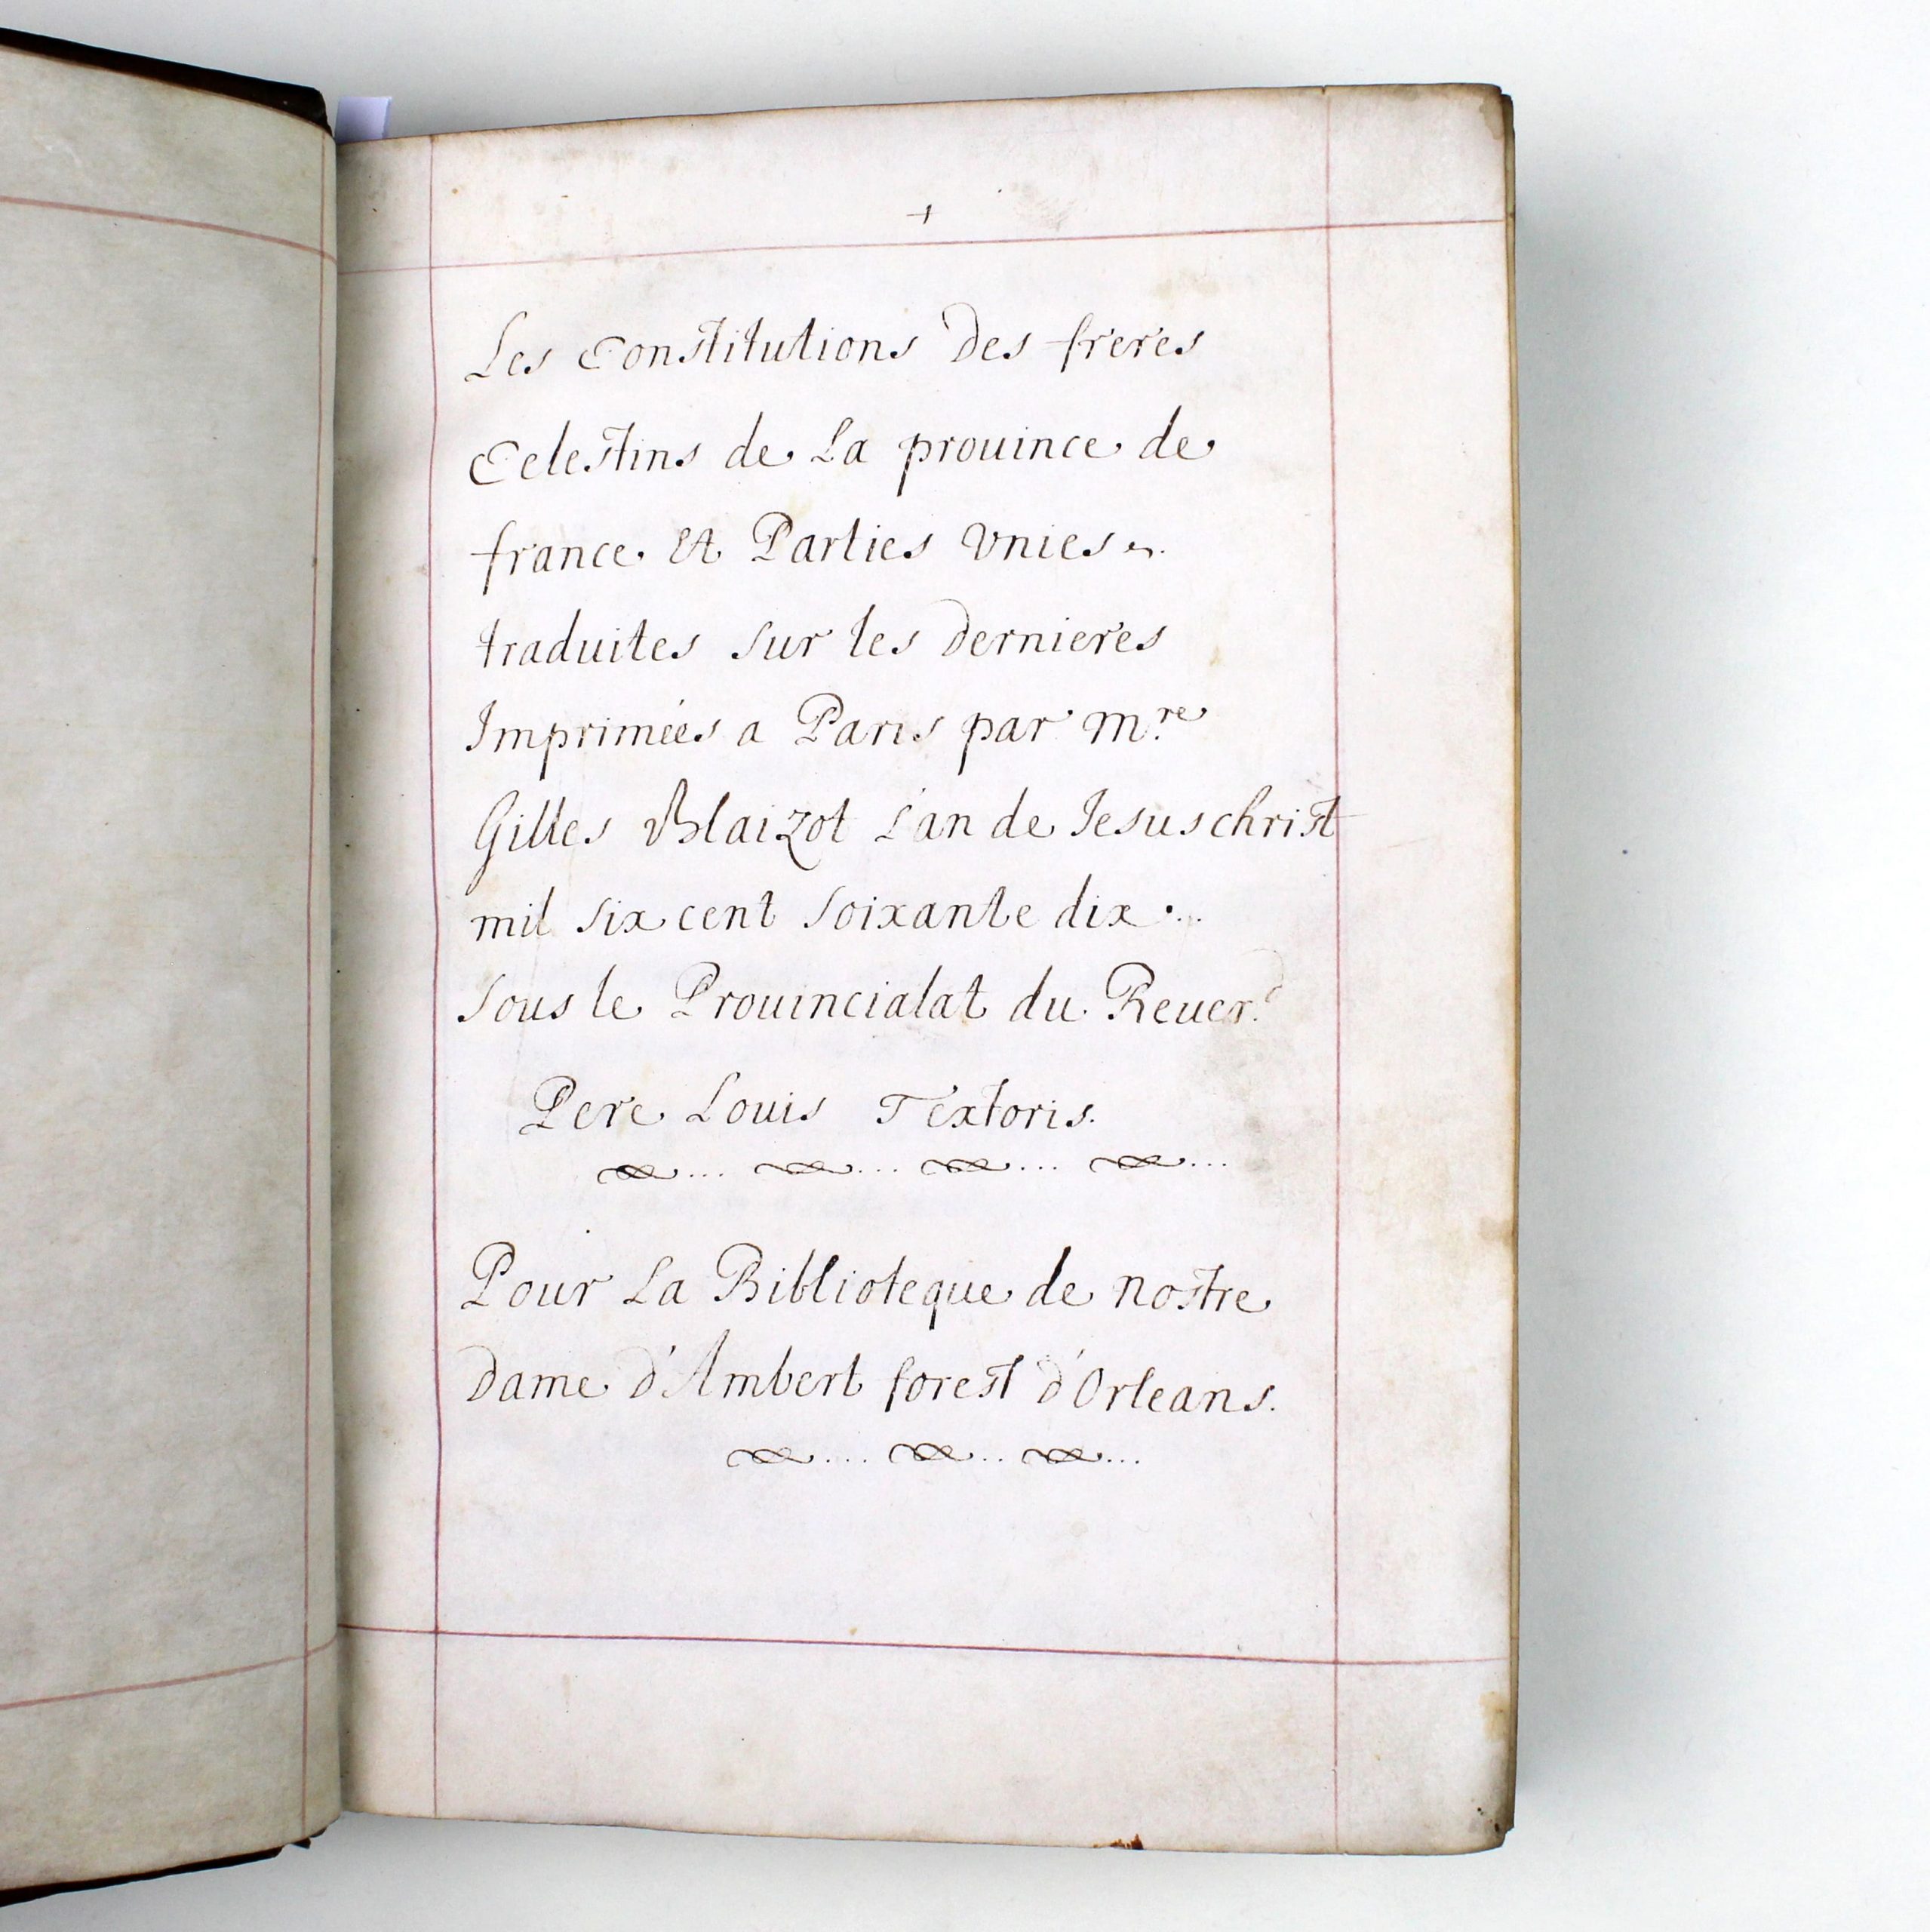 +
Les Constitutions Des freres
Celestins de La prouince de
france Et Parties Vnies
traduites sur les dernieres
Imprimées a Paris par Mre
Gilles Blaizot L'an de Jesus christ
mil six cent soixante dix
sous le Prouincialat du Reuer.d
Pere Louis Textoris.
Pour La Biblioteque de nostre
Dame d'Ambert forest d'Orleans.